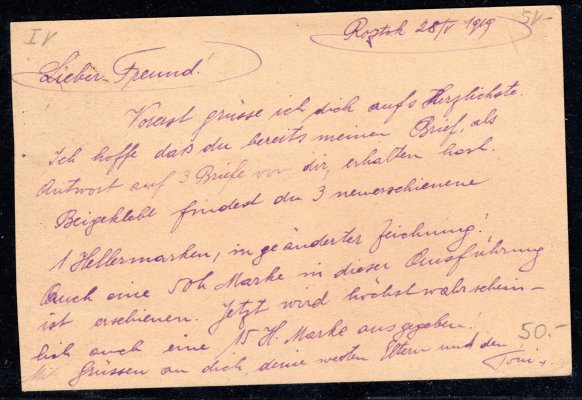 IV
5V-
Roztok 28/V 1919
Lieber Freund!
Vorerst grüsse ich dich aufs Herzlichste.
Ich hoffe daß du bereits meinen Brief, als
Antwort auf 3 Briefe von dir, erhalten hast.
Beigeklebt findest du 3 neuerschienene
1 Hellermarken, in geänderter Zeichnung!
Auch eine 50h Marke in dieser Ausführung
ist erschienen. Jetzt wird höchstwahrschein-
lich auch eine 15 H. Marke ausgegeben!
50.-
Mit Grüssen an dich, deine werten Eltern und den
Toni.